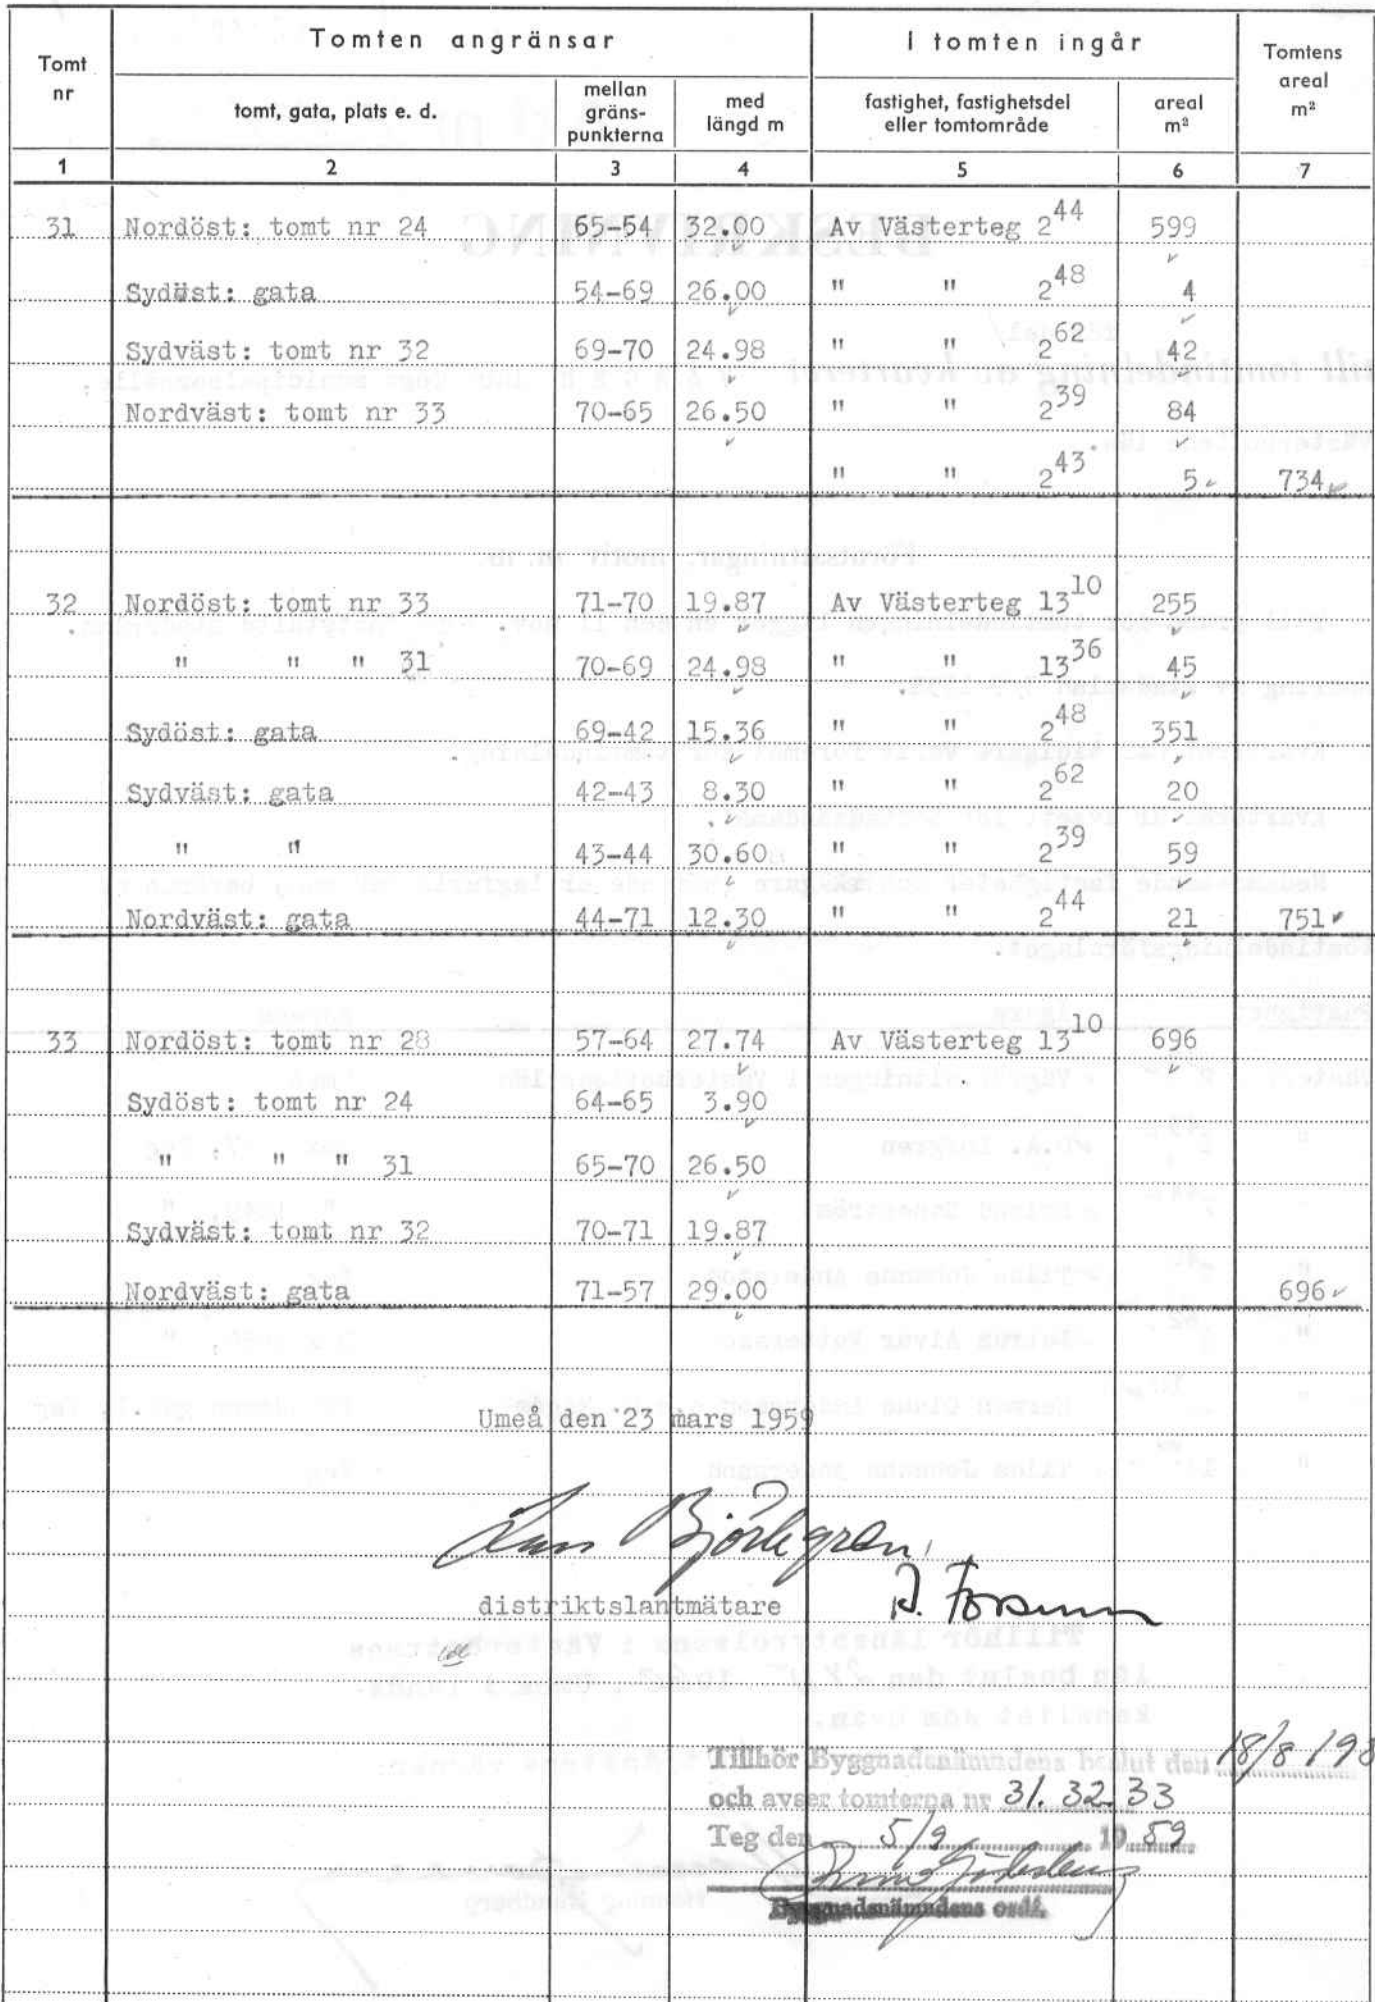 Tomt nr | Tomten angränsar | I tomten ingår | Tomtens areal m²
tomt, gata, plats e. d. | mellan gräns-punkterna | med längd m | fastighet, fastighetsdel eller tomtområde | areal m²
1 | 2 | 3 | 4 | 5 | 6 | 7
31 Nordöst: tomt nr 24 65-54 32.00 Av Västerteg 2⁴⁴ 599
Sydöst: gata 54-69 26.00 " " 2⁴⁸ 4
Sydväst: tomt nr 32 69-70 24.98 " " 2⁶² 42
Nordväst: tomt nr 33 70-65 26.50 " " 2³⁹ 84
" " 2⁴³ 5 734
32 Nordöst: tomt nr 33 71-70 19.87 Av Västerteg 13¹⁰ 255
" " " 31 70-69 24.98 " " 13³⁶ 45
Sydöst: gata 69-42 15.36 " " 2⁴⁸ 351
Sydväst: gata 42-43 8.30 " " 2⁶² 20
" " 43-44 30.60 " " 2³⁹ 59
Nordväst: gata 44-71 12.30 " " 2⁴⁴ 21 751
33 Nordöst: tomt nr 28 57-64 27.74 Av Västerteg 13¹⁰ 696
Sydöst: tomt nr 24 64-65 3.90
" " " 31 65-70 26.50
Sydväst: tomt nr 32 70-71 19.87
Nordväst: gata 71-57 29.00 696
Umeå den 23 mars 1959
Björkgren
distriktslantmätare
Tillhör Byggnadsnämndens beslut den 18/8 19
och avser tomterna nr 31. 32. 33
Teg den 5/9 19 59
Byggnadsnämndens ordf.